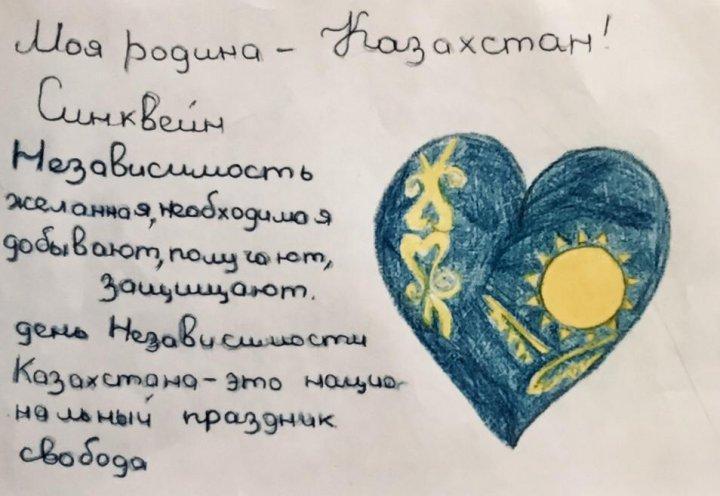 Моя родина - Казахстан!
Синквейн
Независимость
желанная, необходимая
добывают, получают,
защищают.
день Независимости
Казахстана - это нацио-
нальный праздник
свобода